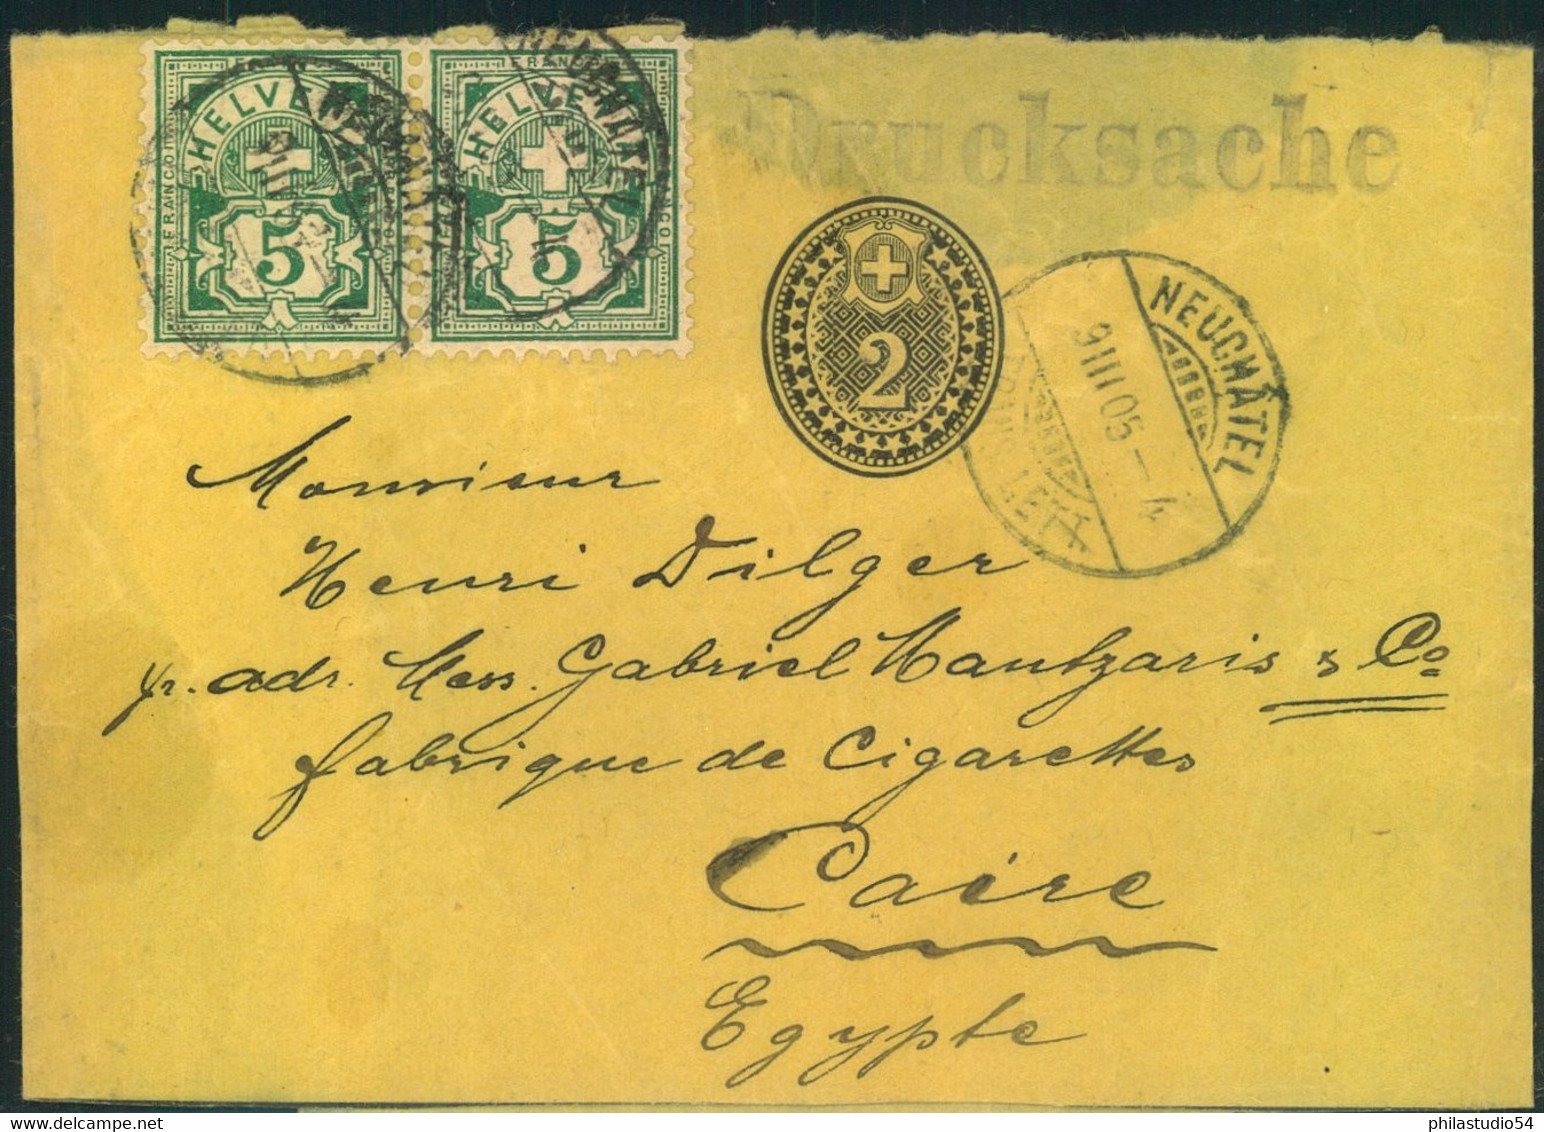 HELVETIA HELVETIA
FRANCO FRANCO
5 5
NEUCHÂTEL NEUCHATEL
Drucksache
2
NEUCHÂTEL
9 III 05 – 4
LETT.
Monsieur
Henri Dilger
pr. adr. Mess. Gabriel Mantzaris & Co
fabrique de Cigarettes
Caire
Egypte
philastudio54